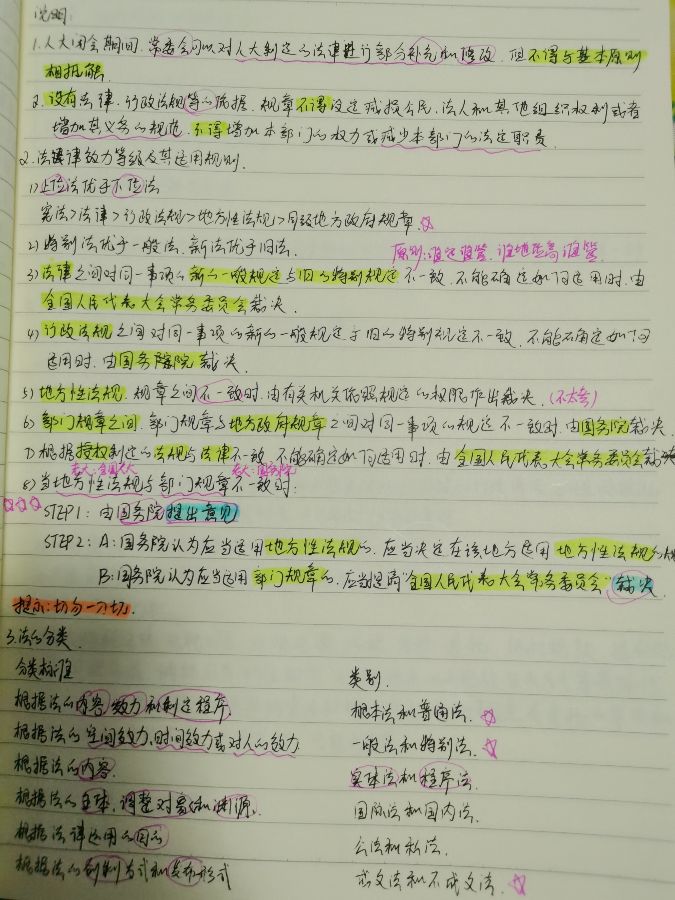 说明:
1.人大闭会期间,常委会可以对人大制定的法律进行部分补充和修改,但不得与基本原则
相抵触.
2.没有法律、行政法规等的依据,规章不得设定减损公民、法人和其他组织权利或者
增加其义务的规范,不得增加本部门的权力或减少本部门的法定职责.
2.法律效力等级及其适用规则.
1)上位法优于下位法
宪法>法律>行政法规>地方性法规>同级地方政府规章.☆
2)特别法优于一般法、新法优于旧法. 原则:谁定谁管,谁地至高谁管
3)法律之间对同一事项的新的一般规定与旧的特别规定不一致,不能确定如何适用时,由
全国人民代表大会常务委员会裁决.
4)行政法规之间对同一事项的新的一般规定于旧的特别规定不一致,不能确定如何
适用时,由国务院裁决.
5)地方性法规、规章之间不一致时,由有关机关依照规定的权限作出裁决.(不太考)
6)部门规章之间、部门规章与地方政府规章之间对同一事项的规定不一致时,由国务院裁决.
7)根据授权制定的法规与法律不一致,不能确定如何适用时,由全国人民代表大会常务委员会裁决
老大:全国人大 老大:国务院
8)当地方性法规与部门规章不一致时:
☆☆☆ STEP1:由国务院提出意见
STEP2:A:国务院认为应当适用地方性法规的,应当决定在该地方适用地方性法规的规
B:国务院认为应当适用部门规章的,应当提高"全国人民代表大会常务委员会"裁决.
提示:切勿一刀切.
3.法的分类.
分类标准 类别.
根据法的内容、效力和制定程序. 根本法和普通法.☆
根据法的空间效力、时间效力或对人的效力 一般法和特别法.☆
根据法的内容. 实体法和程序法.
根据法的主体、调整对象和渊源. 国际法和国内法.
根据法律运用的目的 公法和私法.
根据法的创制方式和发布形式 成文法和不成文法.☆